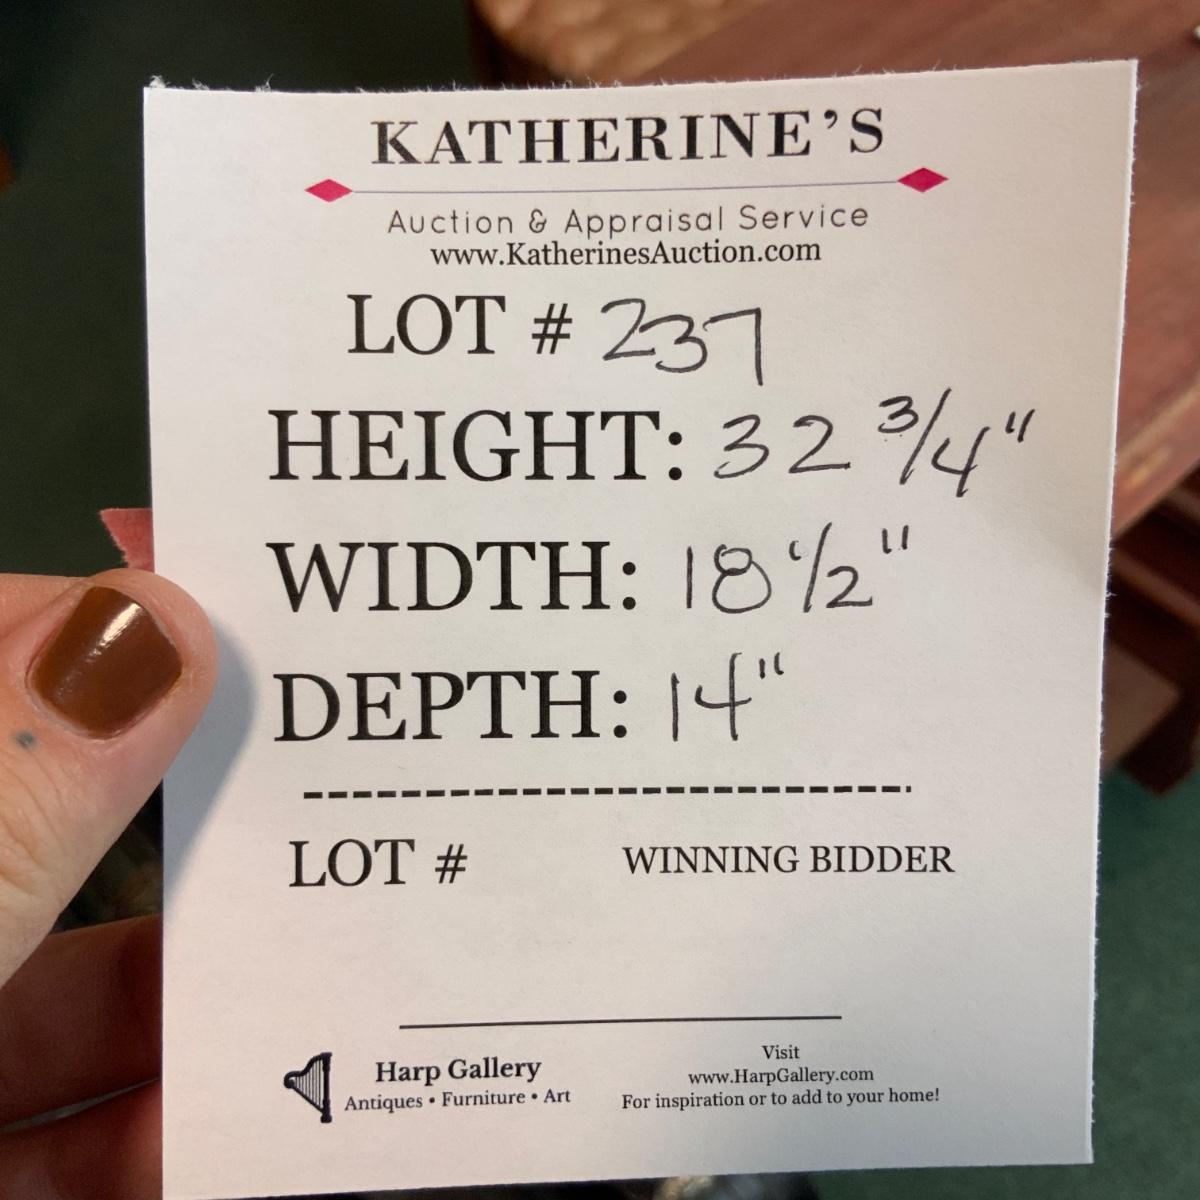 KATHERINE'S
Auction & Appraisal Service
www.KatherinesAuction.com
LOT # 237
HEIGHT: 32 3/4"
WIDTH: 18 1/2"
DEPTH: 14"
LOT # WINNING BIDDER
Harp Gallery
Antiques • Furniture • Art
Visit
www.HarpGallery.com
For inspiration or to add to your home!